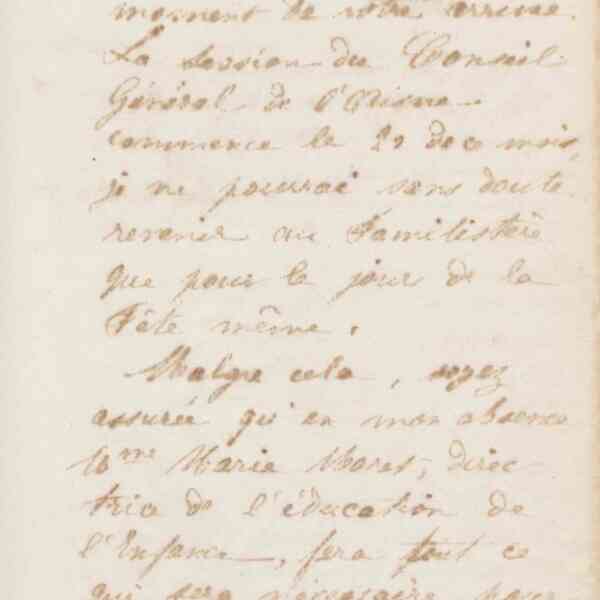 moment de votre arrivée.
La session du Conseil
Général de l'Aisne
commence le 22 de ce mois,
je ne pourrai sans doute
revenir au Familistère
que pour le jour de la
Fête même.
Malgré cela, soyez
assurée qu'en mon absence
Mme Marie Moret, direc-
trice de l'éducation de
l'Enfance, fera tout ce
qui sera nécessaire pour